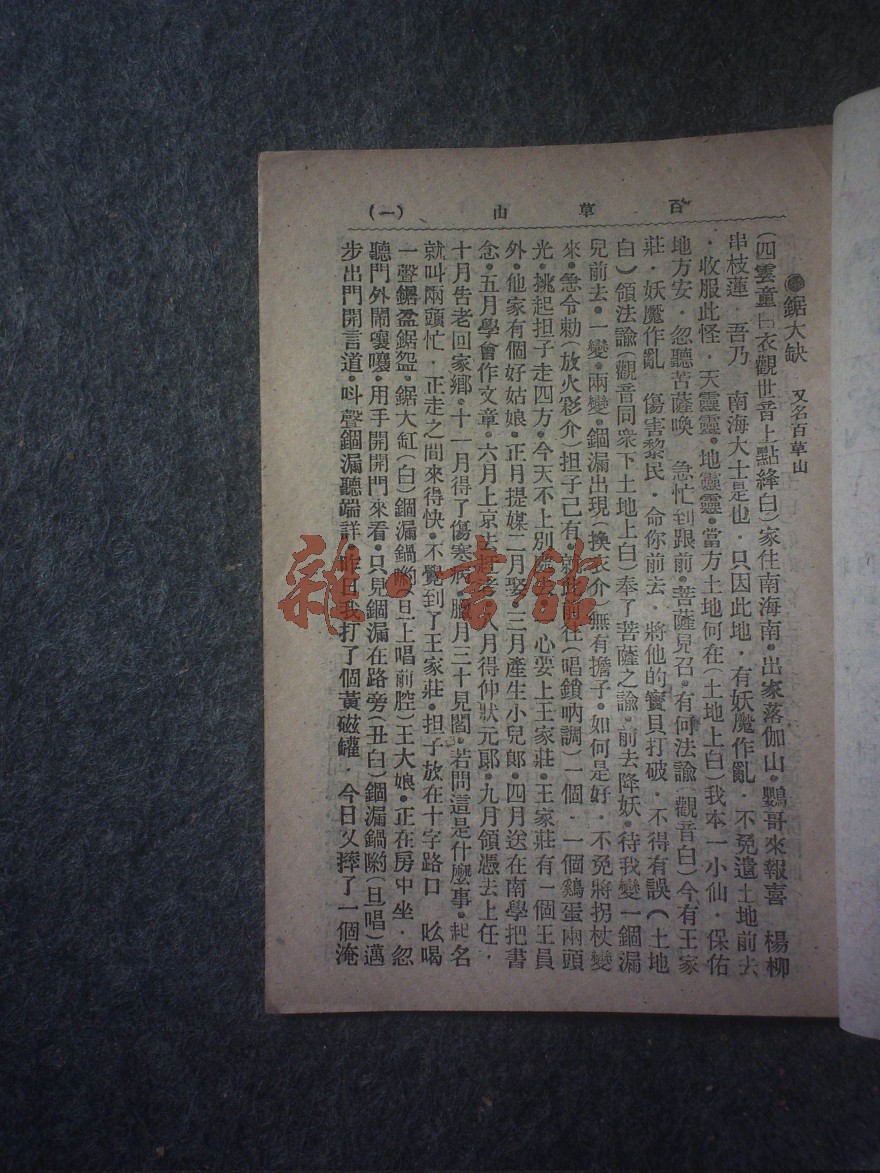 百草山 （一）
●鋸大缺 又名百草山
（四雲童白衣觀世音上點絳白）家住南海南●出家落伽山●鸚哥來報喜 楊柳
串枝蓮．吾乃 南海大士是也．只因此地．有妖魔作亂．不免遣土地前去
．收服此怪．天靈靈●地靈靈●當方土地何在（土地上白）我本一小仙．保佑
地方安．忽聽菩薩喚 急忙到跟前●菩薩見召●有何法諭（觀音白）今有王家
莊．妖魔作亂 傷害黎民．命你前去．將他的寶貝打破．不得有誤（土地
白）領法諭（觀音同衆下土地上白）奉了菩薩之諭．前去降妖●待我變一錮漏
兒前去●一變●兩變●錮漏出現（換衣介）無有擔子●如何是好．不免將拐杖變
來●急令勅（放火彩介）担子已有●就此前往（唱鎖吶調）一個．一個鷄蛋兩頭
光●挑起担子走四方●今天不上別處去 心要上王家莊●王家莊有一個王員
外●他家有個好姑娘●正月提媒二月娶●三月產生小兒郎●四月送在南學把書
念●五月學會作文章●六月上京去赶考 八月得仲狀元郎●九月領憑去上任．
十月告老回家鄉●十一月得了傷寒病●臘月三十見閻●若問這是什麼事●起名
就叫兩頭忙．正走之間來得快●不覺到了王家莊●担子放在十字路口 吆喝
一聲鋸盆鋸盌●鋸大缸（白）錮漏鍋喲（旦上唱前腔）王大娘●正在房中坐．忽
聽門外鬧嚷嚷●用手開開門來看●只見錮漏在路旁（丑白）錮漏鍋喲（旦唱）邁
步出門開言道●叫聲錮漏聽端詳●昨日我打了個黃磁罐．今日又摔了一個淹
雜·書館